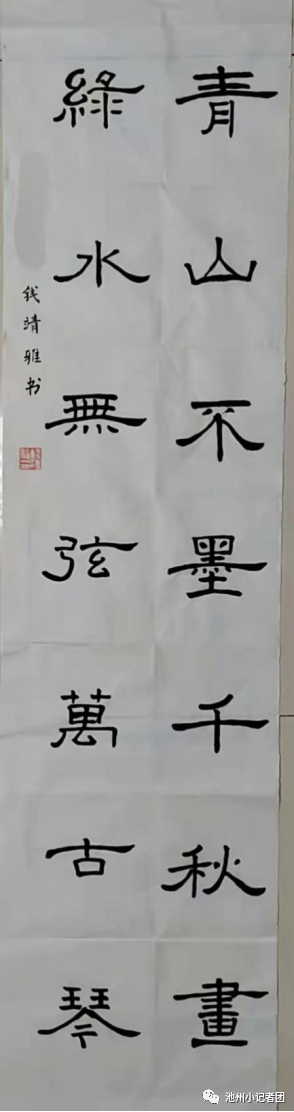 青山不墨千秋畫
綠水無弦萬古琴
钱靖雅书
池州小记者团